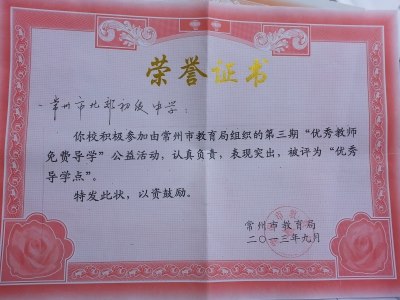 荣誉证书
常州市北郊初级中学：
你校积极参加由常州市教育局组织的第三期“优秀教师
免费导学”公益活动，认真负责，表现突出，被评为“优秀
导学点”。
特发此状，以资鼓励。
常州市教育局
二〇一三年九月